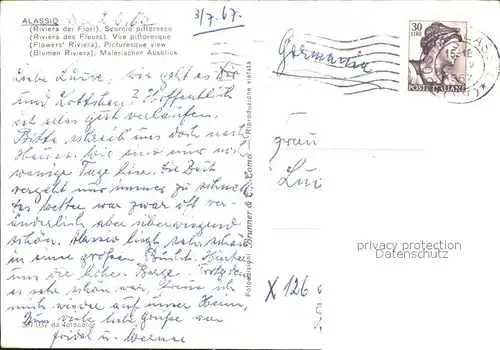 ALASSIO
(Riviera dei Fiori). Scorcio pittoresco
(Riviera des Fleurs). Vue pittoresque
(Flowers' Riviera), Picturesque view
(Blumen Riviera), Malerischer Ausblick
3/7.67.
Liebe Luise, wie geht es Dir
und Lottchen? Hoffentlich
ist alles gut verlaufen.
Bitte schreib uns doch nach
Hause. Wir sind nur noch
wenige Tage hier. Die Zeit
vergeht uns immer zu schnell
Das Wetter war zwar oft ver-
änderlich, aber überwiegend
schön. Alassio liegt sehr schön
in einer großen Bucht. Hinter
uns die hohen Berge. Trotzdem
es sehr schön war, freue ich
mich wieder auf unser Heim,
Nun viele liebe Grüße von
Fridel u. Werner
da fotocolor
Fotoedizioni Brunner & C., Como - Riproduzione vietata
Germania
30
LIRE
POSTE ITALIANE
15-18
1967
Frau
Lui
privacy protection
Datenschutz
X 126